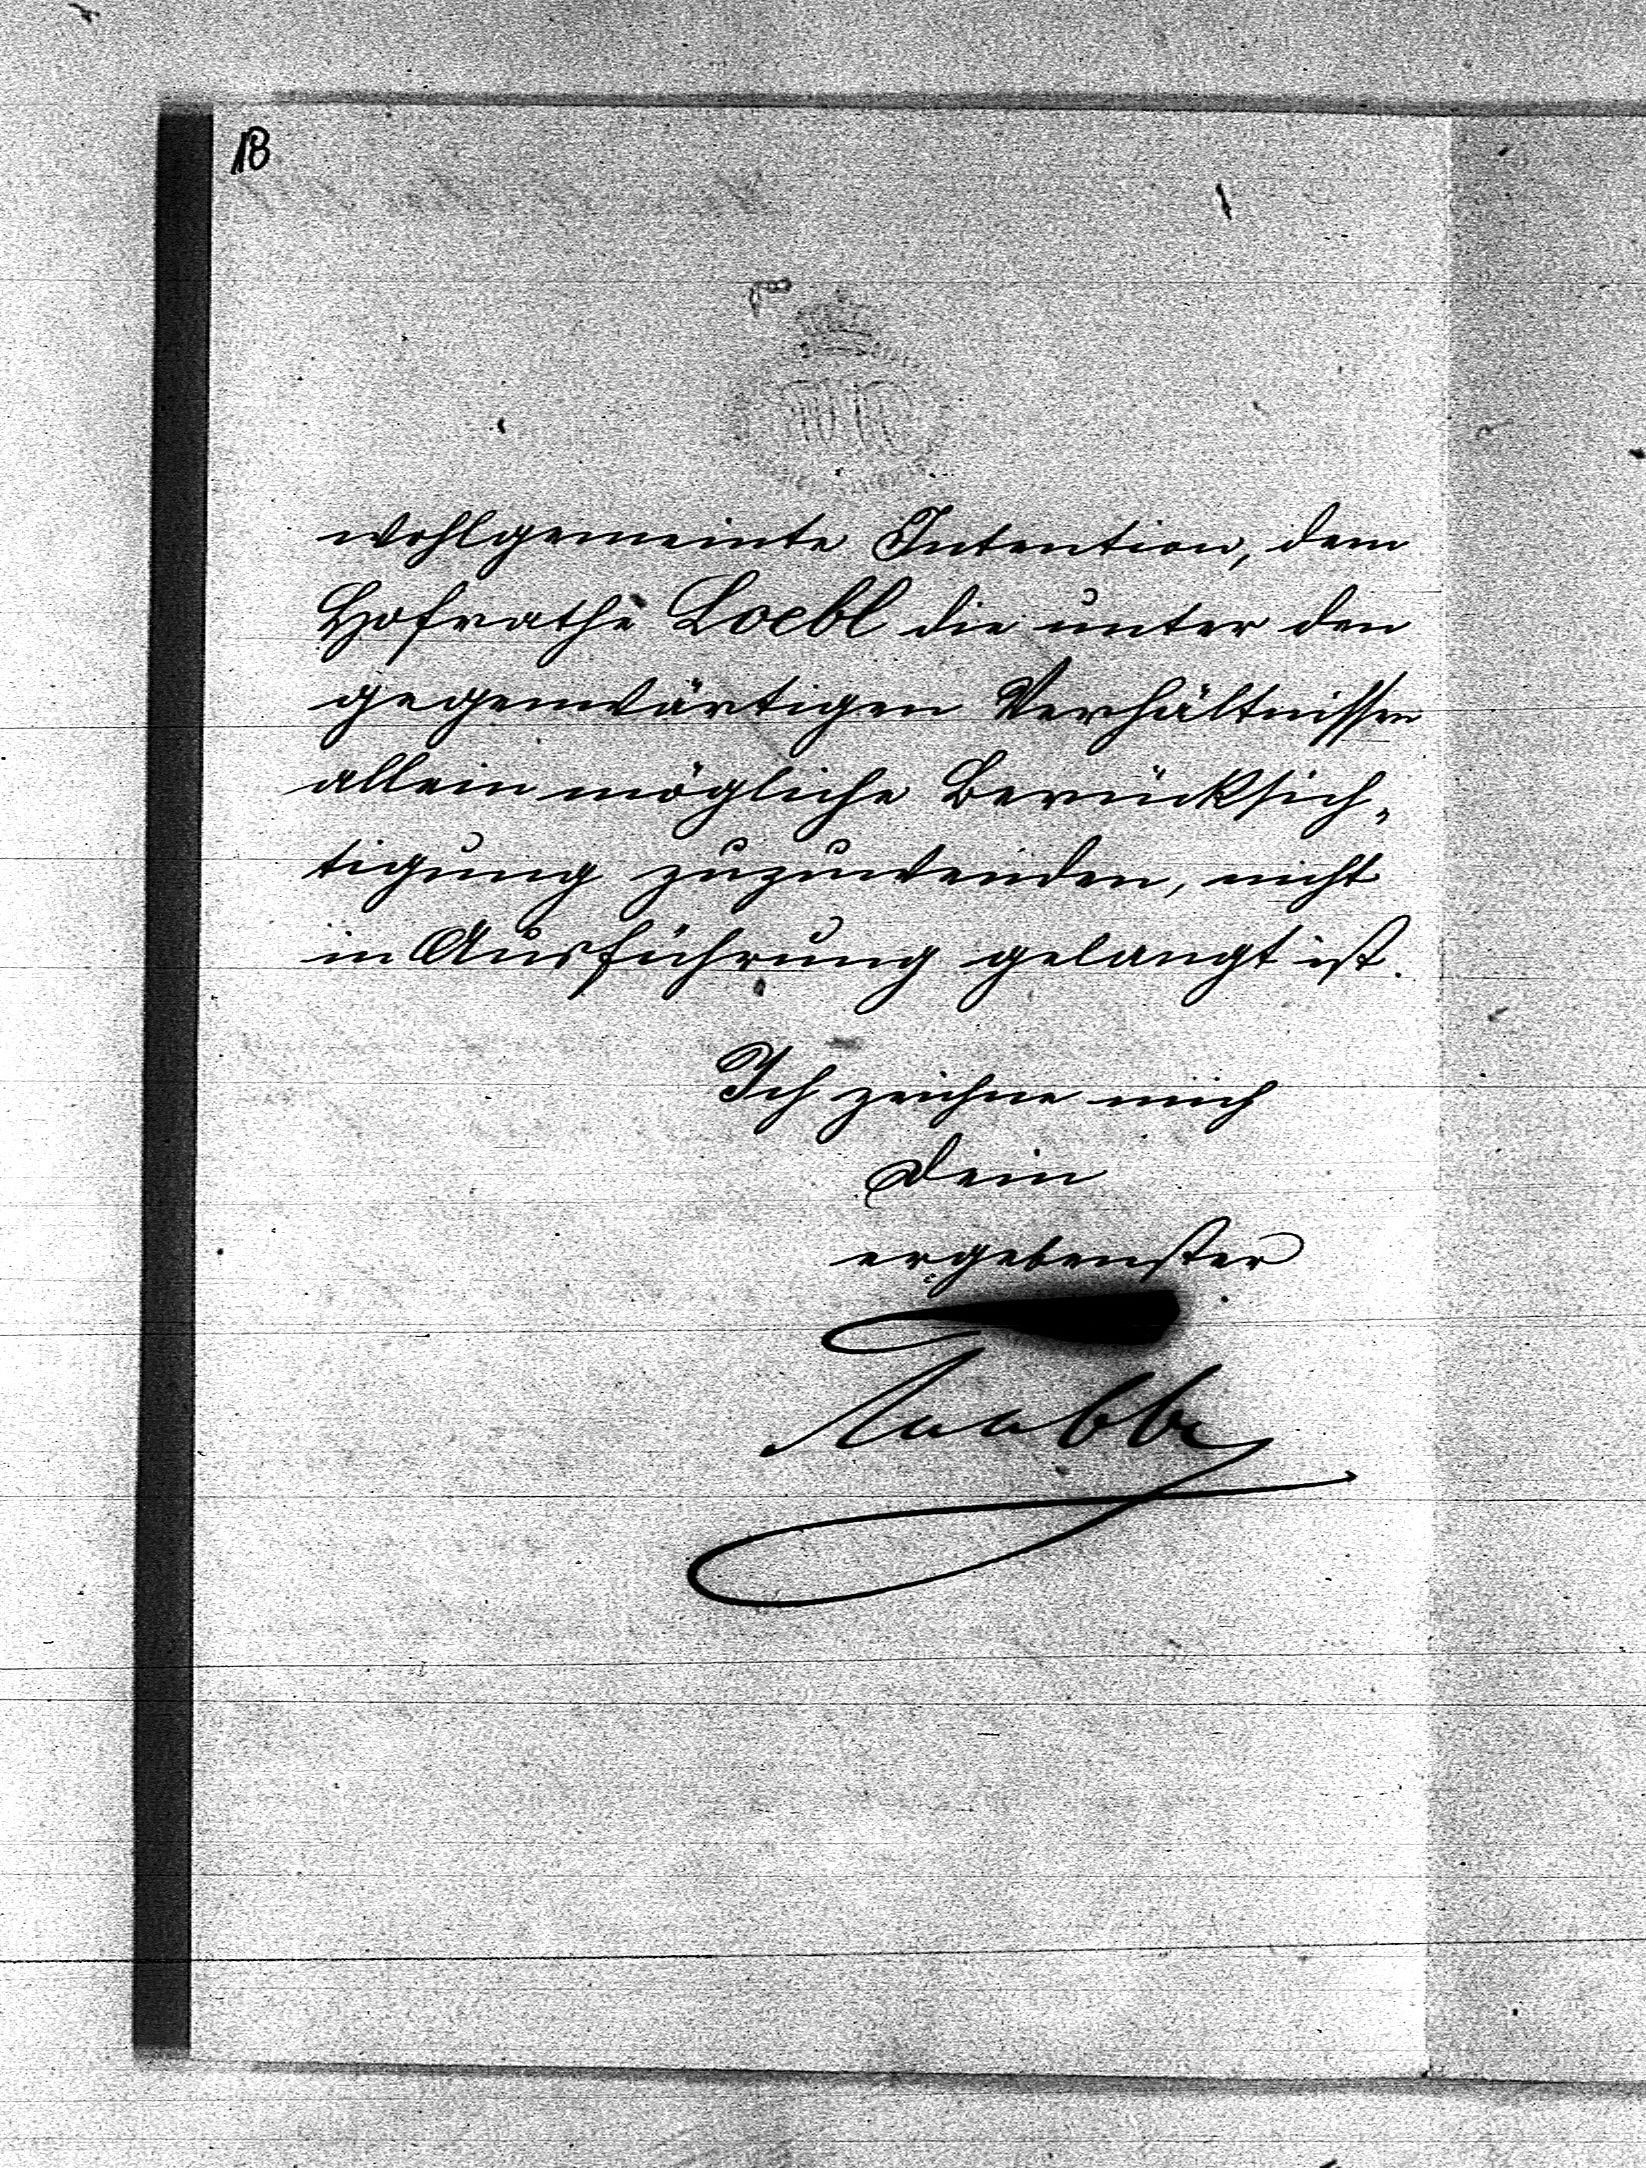 18
wohlgemeinte Intention, dem
Hofrathe Loebl die unter den
gegenwärtigen Verhältnissen
allein mögliche Berücksich„
tigung zuzuwenden, nicht
in Ausführung gelangt ist.
Ich zeichne mich
Dein
ergebenster
Taaffe